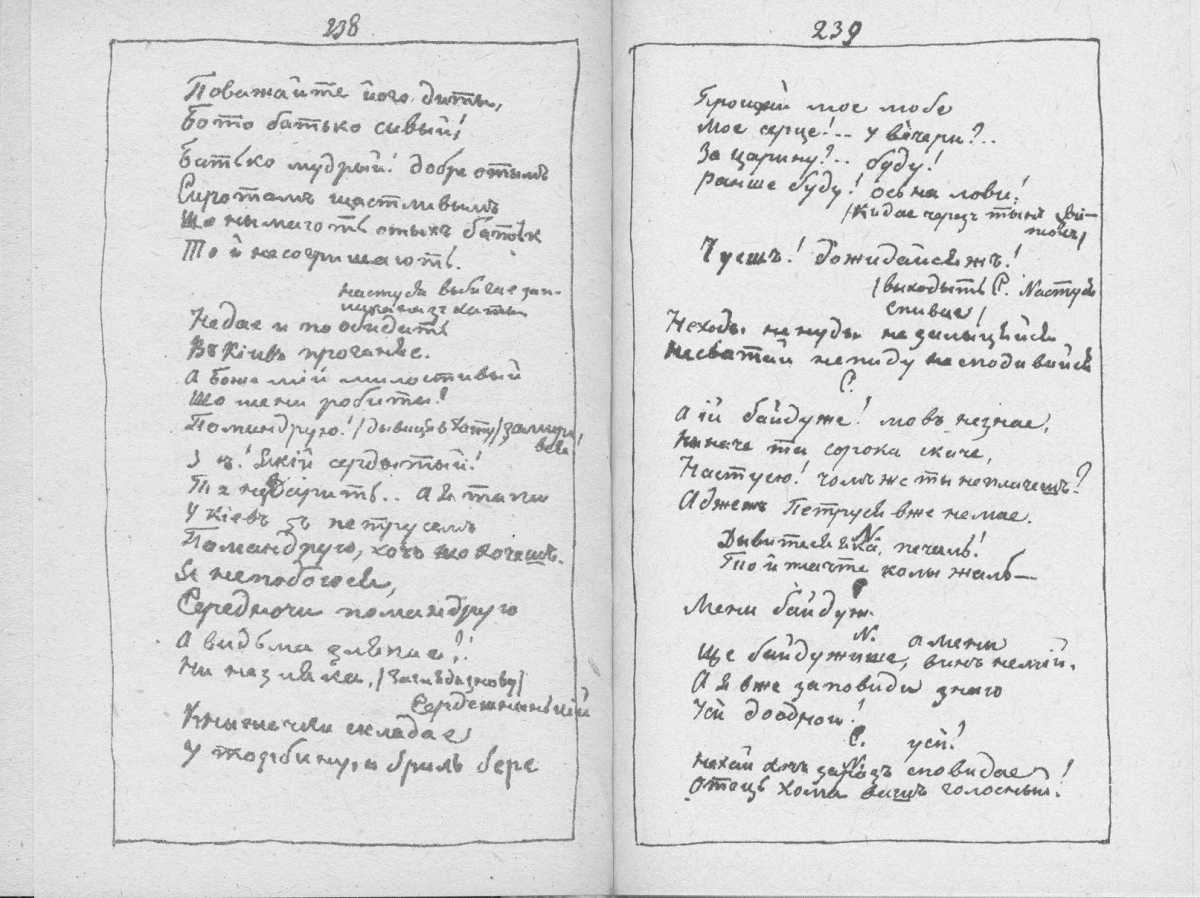 238
Поважайте його, диты,
Бото батько сивый!
Батько мудрый! добре отымъ
Сиротамъ щастливымъ
Що нымаютъ отыхъ батьк
То й несогришаютъ.
Настуся выбигае зап-
из хаты
Недае и пообидать
Въ Кіивъ проганяе.
А Боже мій милостивый
Що мени робыты?
Помандрую! /дывиця в хату/
Якій сердытый!
Та не вдарить.. А я таки
У Кіевъ зъ петрусемъ
Помандрую, хочъ що хочешъ.
Я непобоюся,
Середночи помандрую
А видьма злякае?!
Ни незляка, /заглядазнову/
Сердешненькій
Кныжечки складае
У торбину, и бриль бере
239
Прощай мое любе
Мое серце!.. у вечери?..
За царину?.. буду!
Раньше буду! ось на лови!
/Кидае черезъ тынъ кви-
точку/
Чуешъ! дожидайсяжъ!
/выходыть С. Настуся
спивае/
Неходы ненуды не залыцяйся
Несватай непиду несподивайся
С.
А ій байдуже! мовъ незнае,
Неначе та сорока скаче,
Настусю! чомъ же ты неплачешъ?
Аджежъ Петруся вже немае.
N.
Дывитеся яка, печаль!
То й плачте колы жаль—
Мени байдуж.
N. а мени
Ще байдужише, винъ немій.
А я вже заповиди знаю
Усй доодного!
С. усй?
N.
Нехай сповидае !
Отець хома голосный.